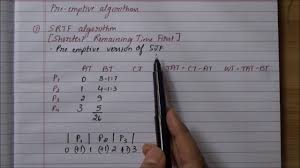 Pre-emptive algorithms
② SRTF algorithm
[Shortest Remaining Time First]
- Pre emptive version of SJF
AT BT CT TAT = CT - AT WT = TAT - BT
P1 0 8-1=7
P2 1 4-1=3
P3 2 9
P4 3 5
26
| P1 | P2 | P2 |
0 (+1) 1 (+1) 2 (+1) 3